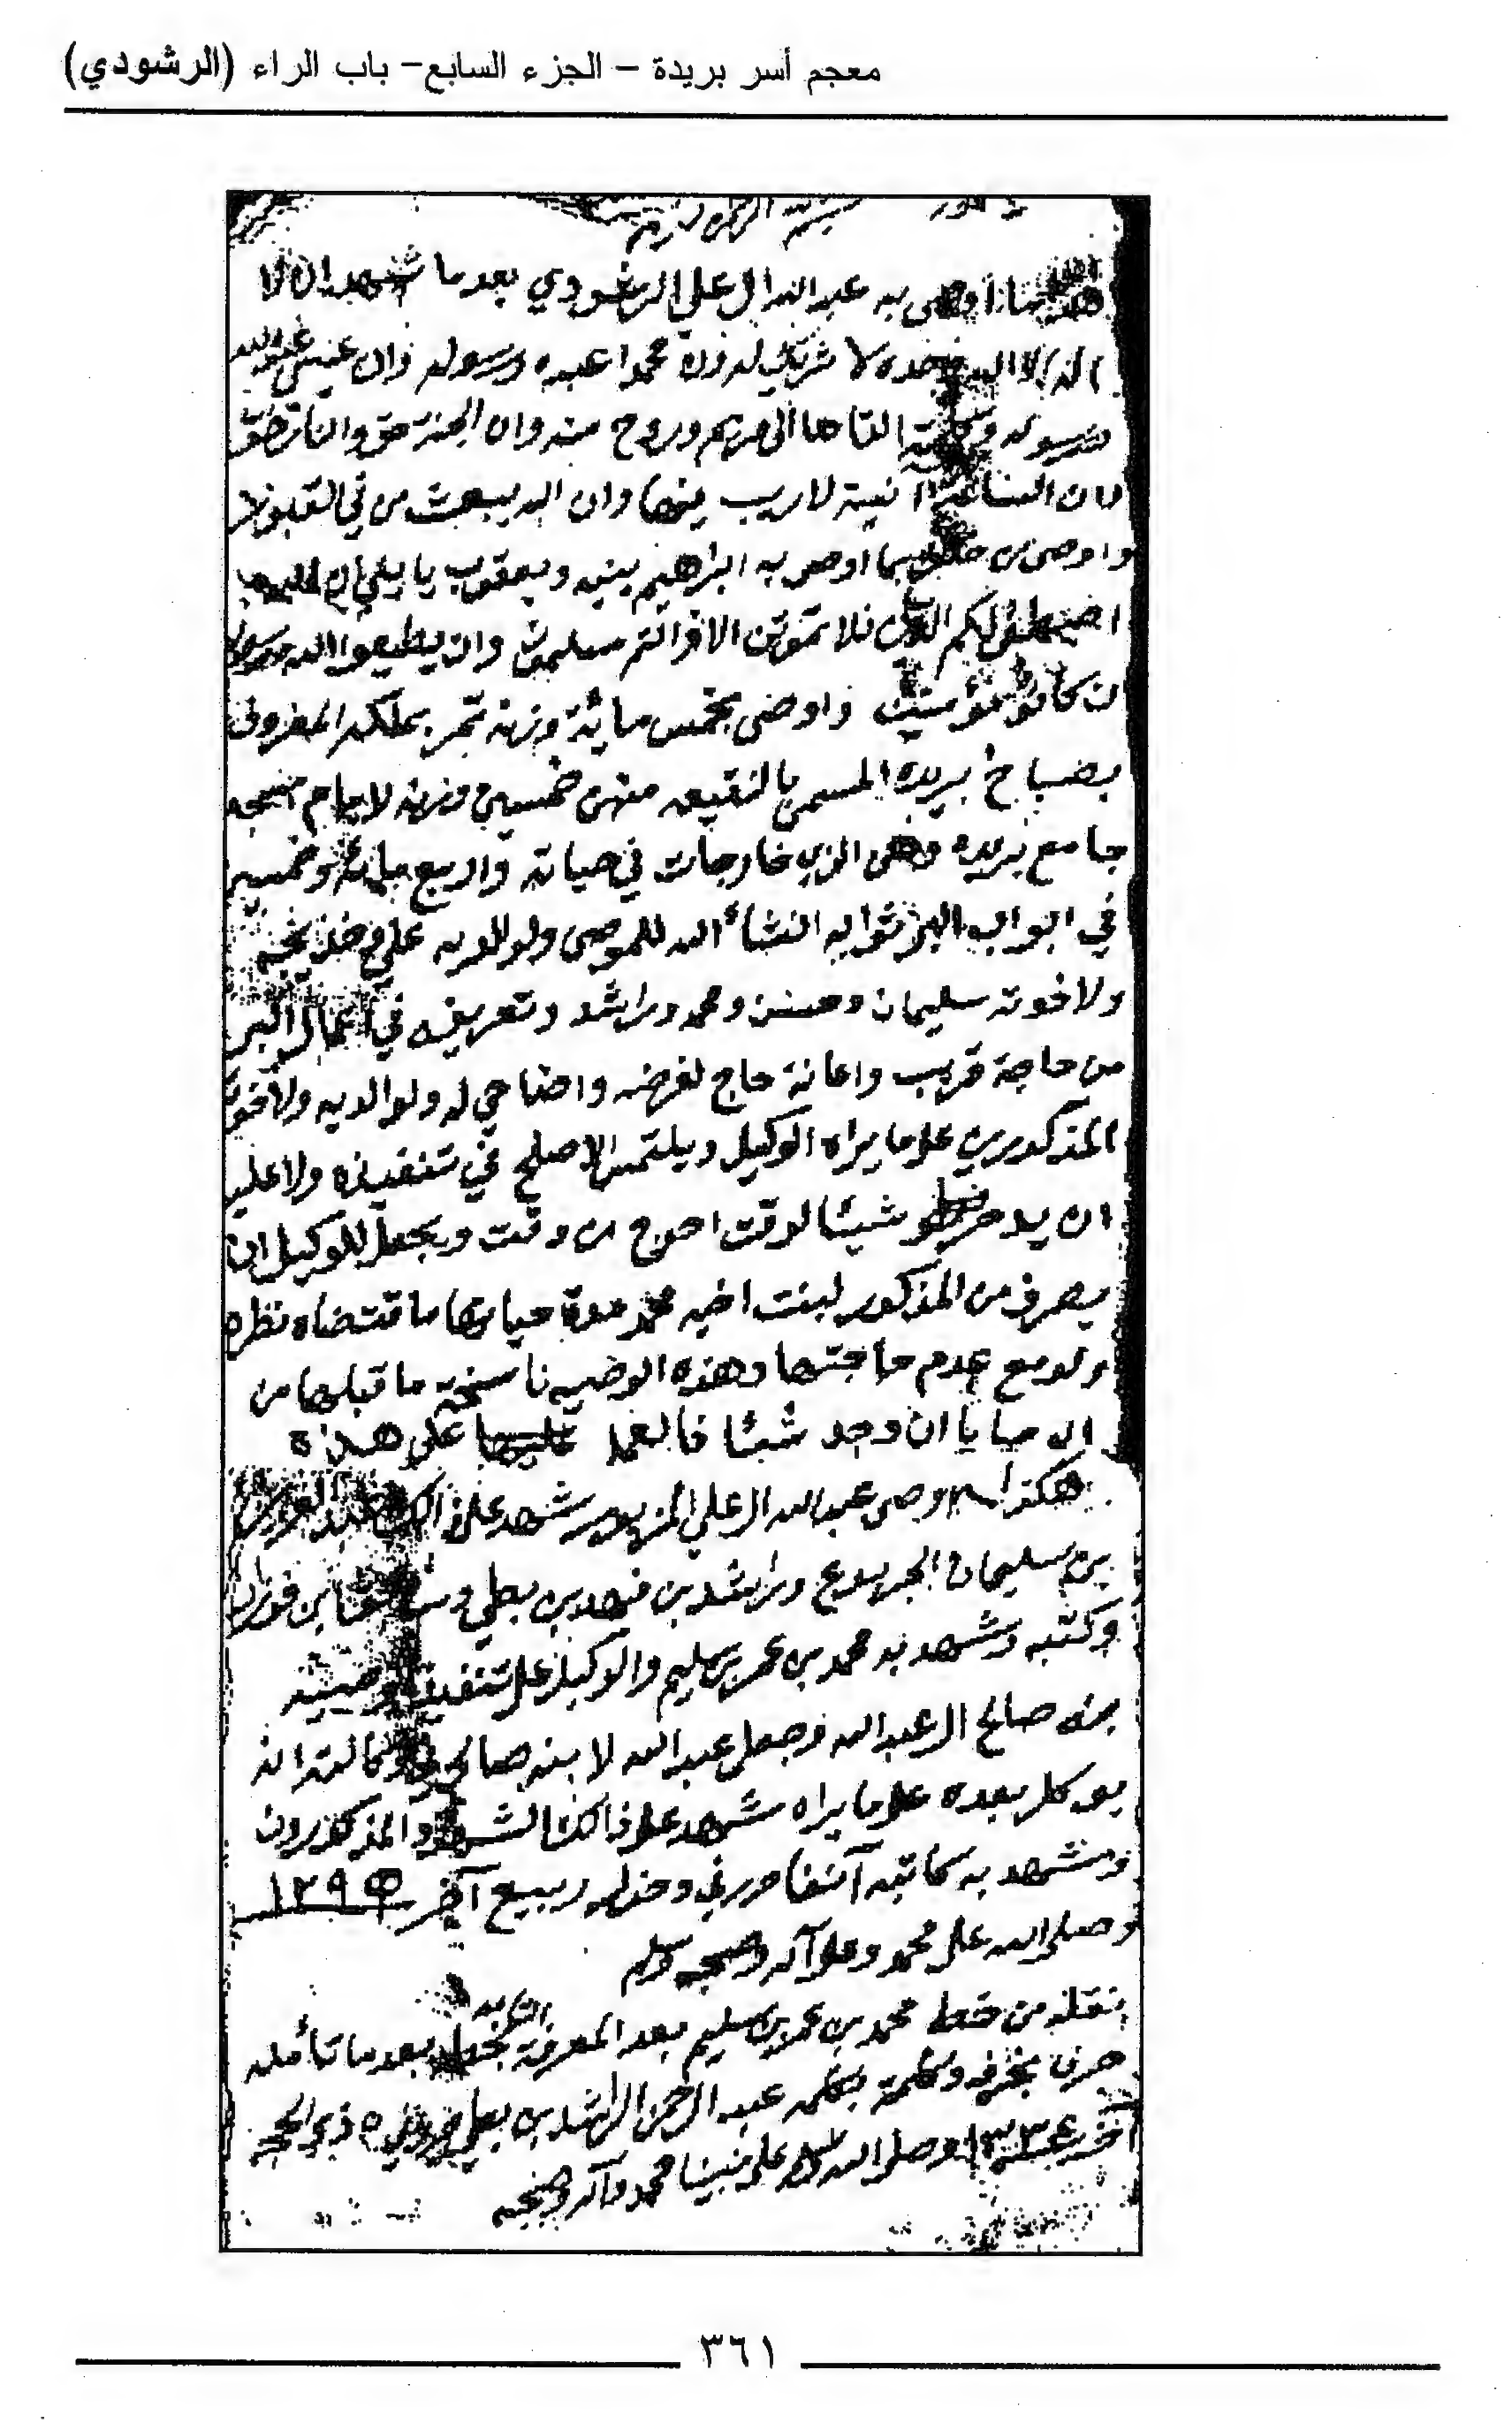 معجم أسر بريدة – الجزء السابع– باب الراء (الرشودي)
هذا ما أوصى به عبد الله ال علي الرشودي بعد ما شهد ان لا
اله الا الله وحده لا شريك له وان محمدا عبده ورسوله وان عيسى عبد الله
ورسوله وكلمته القاها الى مريم وروح منه وان الجنة حق والنار حق
وان الساعة آتية لا ريب فيها وان الله يبعث من في القبور
واوصى من بما اوصى به ابراهيم بنيه ويعقوب يا بني ان الله
اصطفى لكم الدين فلا تموتن الا وانتم مسلمون وان يطيعوا الله ورسوله
ان كانوا مؤمنين واوصى بخمس مائة وزنة تمر بملكه المعروف
بصباخ بريدة المسمى بالنقيعه منهن خمسين وزنه لامام مسجد
جامع بريده وهن الذي خارجات في حياته واربع مائة وخمسين
في ابواب البر ثوابه انشاء الله للموصي ولوالديه علي
ولاخوته سليمان وحسن ومحمد وراشد وتعريفه في اعمال البر
من حاجة قريب واعانة حاج لفرضه واضاحي له ولوالديه ولاخوته
المذكورين على ما يراه الوكيل ويلتمس الاصلح في تنفيذه ولا عليه
ان يدخر شيئا لوقت احوج من وقت ويجعل للوكيل ان
يصرف من المذكور لبنت اخيه محمد مدة حياتها ما قتضاه نظره
ولو مع عدم حاجتها وهذه الوصيه ناسخة ما قبلها من
الوصايا ان وجد شيئا فالعمل عليها على هذه
هكذا اوصى عبد الله ال علي المزبور شهد على ذلك عبد العزيز
بن سليمان الجربوع وراشد بن فهد بن بطي
وكتبه وشهد به محمد بن عمر بن سليم والوكيل على تنفيذ وصيته
ابنه صالح ال عبد الله وجعل عبد الله لابنه صالح في وكالته انه
يوكل بعده على ما يراه شهد على ذلك الشهود المذكورون
وشهد به كاتبه آنفا حرر في ربيع آخر
وصلى الله على محمد وعلى آله وصحبه وسلم
نقله من خط محمد بن عمر بن سليم بعد المعرفة بخطه بعد ما تأمله
حرف بحرف وكلمة بكلمه عبد الرحمن الراشد بن بطي ذي الحجه
وصلى الله وسلم على نبينا محمد وآله وصحبه
٣٦١